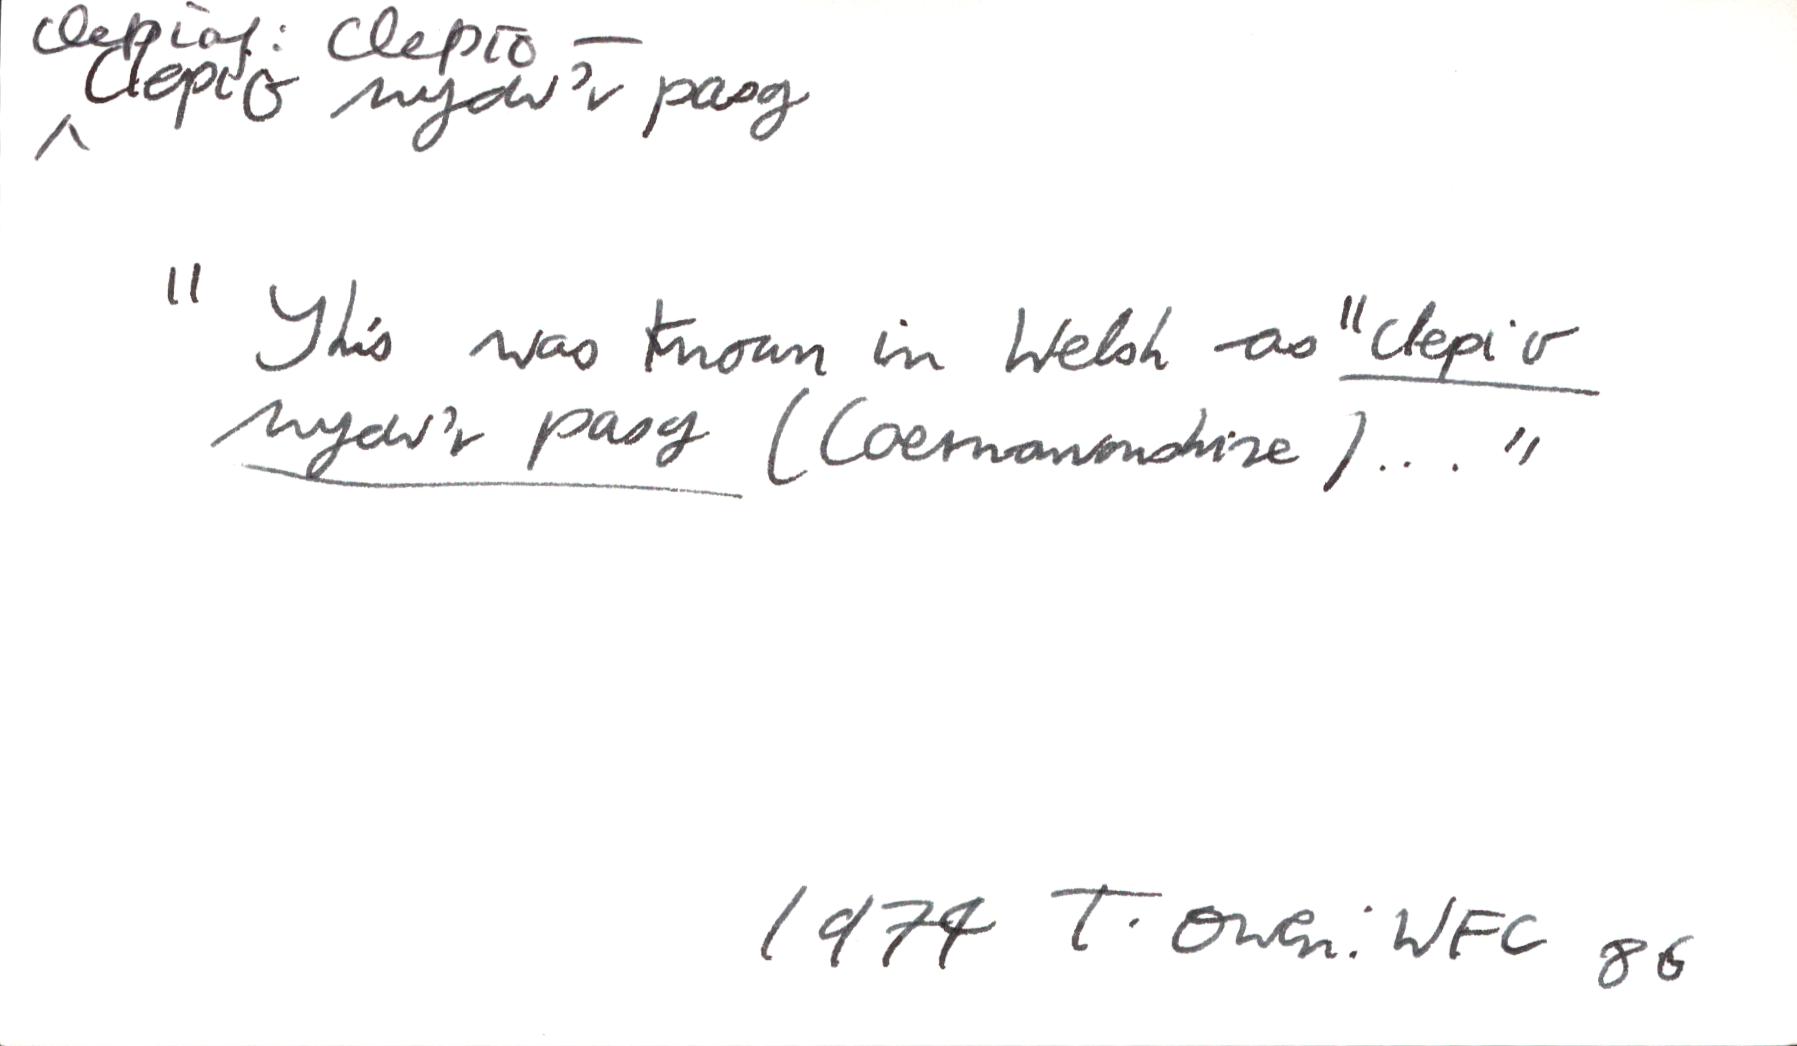 clepiaf: clepio —
^ Clepio nydw'r pasg
" This was known in Welsh as "clepio
nydw'r pasg (Caernarvonshire)... "
1974 T. Owen: WFC 86